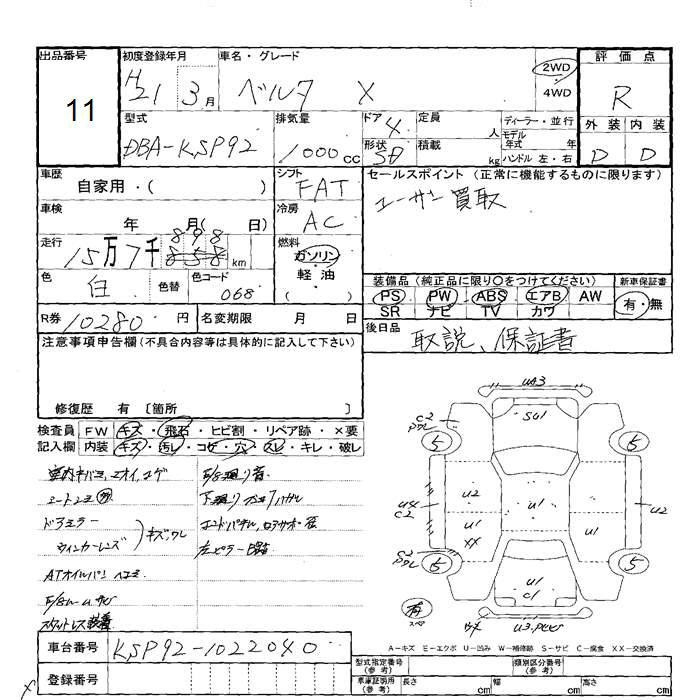 出品番号
11
初度登録年月
H21 3月
車名・グレード
ベルタ X
2WD
4WD
評価点
R
外装 内装
D D
型式
DBA-KSP92
排気量
1000cc
ドア 4
形状 SD
定員 人
積載 kg
ディーラー・並行
モデル年式 年
ハンドル 左・右
車歴
自家用・( )
シフト
FAT
セールスポイント (正常に機能するものに限ります)
ユーザー買取
車検
年 月( 日)
冷房
AC
走行
15万7千858km
898
燃料
ガソリン
軽・油
( )
色
白
色替
色コード
068
装備品 (純正品に限り○をつけてください)
PS PW ABS エアB AW
SR ナビ TV カワ
新車保証書
有・無
R券 10280円
名変期限 月 日
後日品
取説、保証書
注意事項申告欄(不具合内容等は具体的に記入して下さい)
修復歴 有 〔箇所 〕
検査員記入欄
FW キズ・飛石・ヒビ割・リペア跡・×要
内装 キズ・汚レ・コゲ・穴・スレ・キレ・破レ
ドアミラー
ウィンカーレンズ
キズ、ワレ
ATオイルパン ヘコミ
車台番号
KSP92-1022040
登録番号
U43
SU1
C2
5
5
U2
U1
U4
C2
U1
XX
U1
U2
C2
5
5
U1
C1
有
A-キズ E-エクボ U-凹み W-補修跡 S-サビ C-腐食 XX-交換済
型式指定番号
(参考)
類別区分番号
(参考)
車庫証明用
(参考)
長さ cm
幅 cm
高さ cm